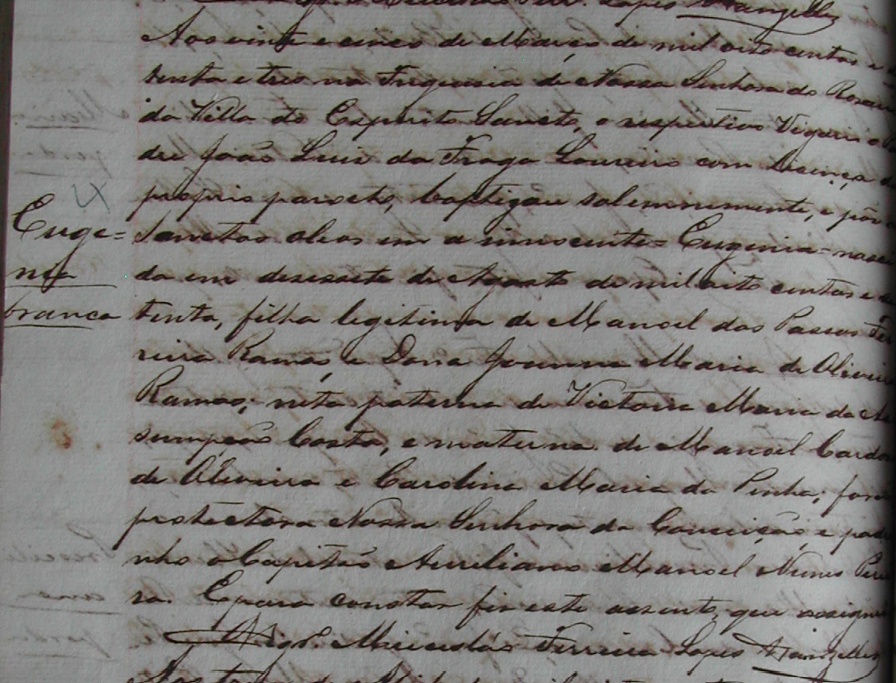 Lopes Wanzeller
Aos vinte e cinco de Março de mil oito centos e
tenta e tres na Freguesia de Nossa Senhora do Rosar
da Villa do Espirito Sancto, o respectivo Vigario
dre João Luiz da Fraga Loureiro com licença
proprio parocho, baptizou solemnemente, e pôs o
Euge= Sanctos oleos em a innocente = Eugenia = nasci
nia da em desesete de Agosto de mil oito centos e
branca tenta, filha legitima de Manoel dos Passos Fer
reira Ramos, e Dona Joanna Maria de Olivei
Ramos; neta paterna de Victoria Maria da As
sumpção Costa, e materna de Manoel Cardo
de Oliveira e Carolina Maria da Penha; foi
protectora Nossa Senhora da Conceição, e padri
nho o Capitão Aureliano Manoel Nunes Perei
ra. E para constar fiz este assento, que assignei
Vigr.º Miceslás Ferreira Lopes Wanzeller